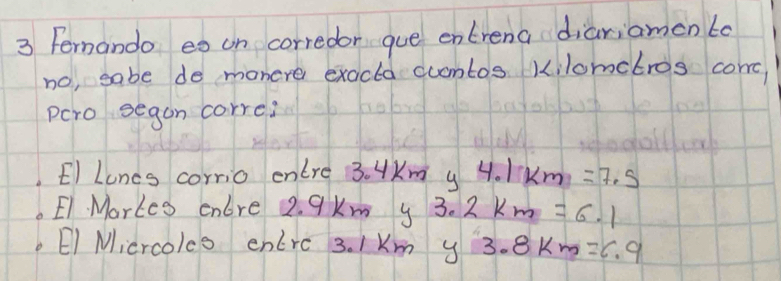 3 Fernando es un corredor que entrena diariamente
no, sabe de manera exacta cuantos Kilometros corre,
pero segun corre:
. El Lunes corrio entre 3.4 Km y 4.1 Km = 7.5
. El Martes entre 2.9 Km y 3.2 Km = 6.1
. El Miercoles entre 3.1 Km y 3.8 Km = 6.9